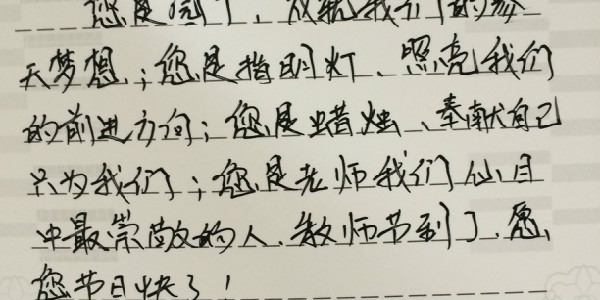 您是园丁、放飞我们的参
天梦想；您是指明灯、照亮我们
的前进方向；您是蜡烛、奉献自己
只为我们；您是老师我们心目
中最崇敬的人、教师节到了、愿
您节日快乐！